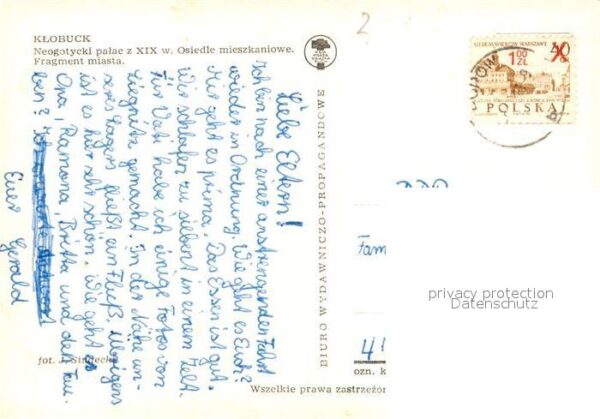 KŁOBUCK
Neogotycki pałac z XIX w. Osiedle mieszkaniowe.
Fragment miasta.
Liebe Eltern!
Ich bin nach einer anstrengenden Fahrt
wieder in Ordnung. Wie geht es Euch?
Mir geht es prima. Das Essen ist gut.
Wir schlafen zu siebent in einem Zelt.
Für Vati habe ich einige Fotos von
Liegnitz gemacht. In der Nähe un-
seres Lagers fließt ein Fluß. Übrigens
ist es hier sehr schön. Wie geht es
Oma, Ramona, Britta und den Tau-
ben?
Euer Gerald
fot. J.
BIURO WYDAWNICZO-PROPAGANDOWE
Wszelkie prawa zastrzeżon
ozn. k
2
1,00
ZŁ
40
POLSKA
DDR
Fam
privacy protection
Datenschutz